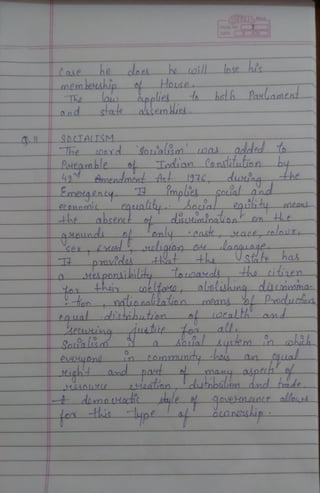 case he does he will lose his
membership of House.
The law applies to both Parliament
and state assemblies.
Q.11 SOCIALISM
The word 'Socialism' was added to
Preamble of Indian Constitution by
42nd Amendment Act 1976, during the
Emergency. It implies social and
economic equality. Social eqility means
the absent of discrimination on the
grounds of only caste, race, colour,
sex, creed, religion or language.
It provides that the State has
a responsibility towards the citizen
for their welfare, abolishing discrimina-
tion, nationalization means of Production,
equal distribution of wealth and
securing justice for all.
Socialism is a social system in which
everyone in community has an equal
right and part of many aspect of
resource creation, distribution and trade.
A democratic style of governance allows
for this type of ownership.